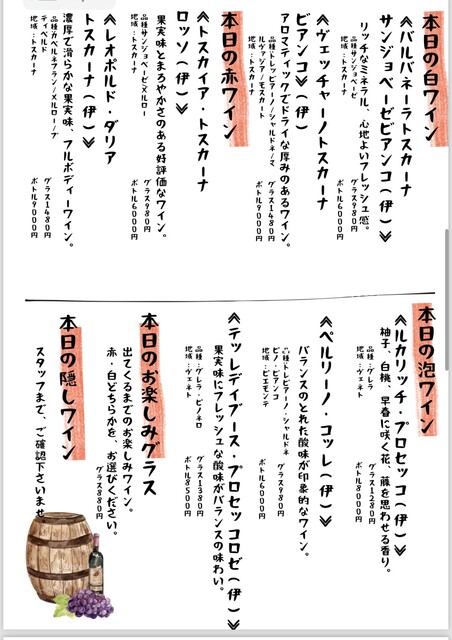 本日の白ワイン
≪バルバネーラトスカーナ
サンジョベーゼビアンコ(伊)≫
リッチなミネラル、心地よいフレッシュ感。
品種サンジョベーゼ
地域:トスカーナ
グラス980円
ボトル6000円
≪ヴェッチャーノトスカーナ
ビアンコ≫(伊)
アロマティックでドライな厚みのあるワイン。
品種トレッビアーノ/シャルドネ/マ
ルヴァジア/モスカート
地域:トスカーナ
グラス1480円
ボトル9000円
本日の赤ワイン
≪トスカイア・トスカーナ
ロッソ(伊)≫
果実味とまろやかさのある好評価なワイン。
品種サンジョベーゼ/メルロー
地域:トスカーナ
グラス980円
ボトル6000円
≪レオポルド・ダリア
トスカーナ(伊)≫
濃厚で滑らかな果実味、フルボディーワイン。
品種カベルネフラン/メルロー/プ
ティベルド
地域:トスカーナ
グラス1480円
ボトル9000円
本日の泡ワイン
≪ルカリッチ・プロセッコ(伊)≫
柚子、白桃、早春に咲く花、藤を思わせる香り。
品種:グレラ
地域:ヴェネト
グラス1280円
ボトル8000円
≪ペルリーノ・コッレ(伊)≫
バランスのとれた酸味が印象的なワイン。
品種トレビアーノ・シャルドネ
ピノ・ビアンコ
地域:ピエモンテ
グラス980円
ボトル6000円
≪テッレディブース・プロセッコロゼ(伊)≫
果実味にフレッシュな酸味がバランスの味わい。
品種:グレラ・ピノネロ
地域:ヴェネト
グラス1380円
ボトル8500円
本日のお楽しみグラス
出てくるまでのお楽しみワイン。
赤・白どちらかを、お選びください。
グラス880円
本日の隠しワイン
スタッフまで、ご確認下さいませ